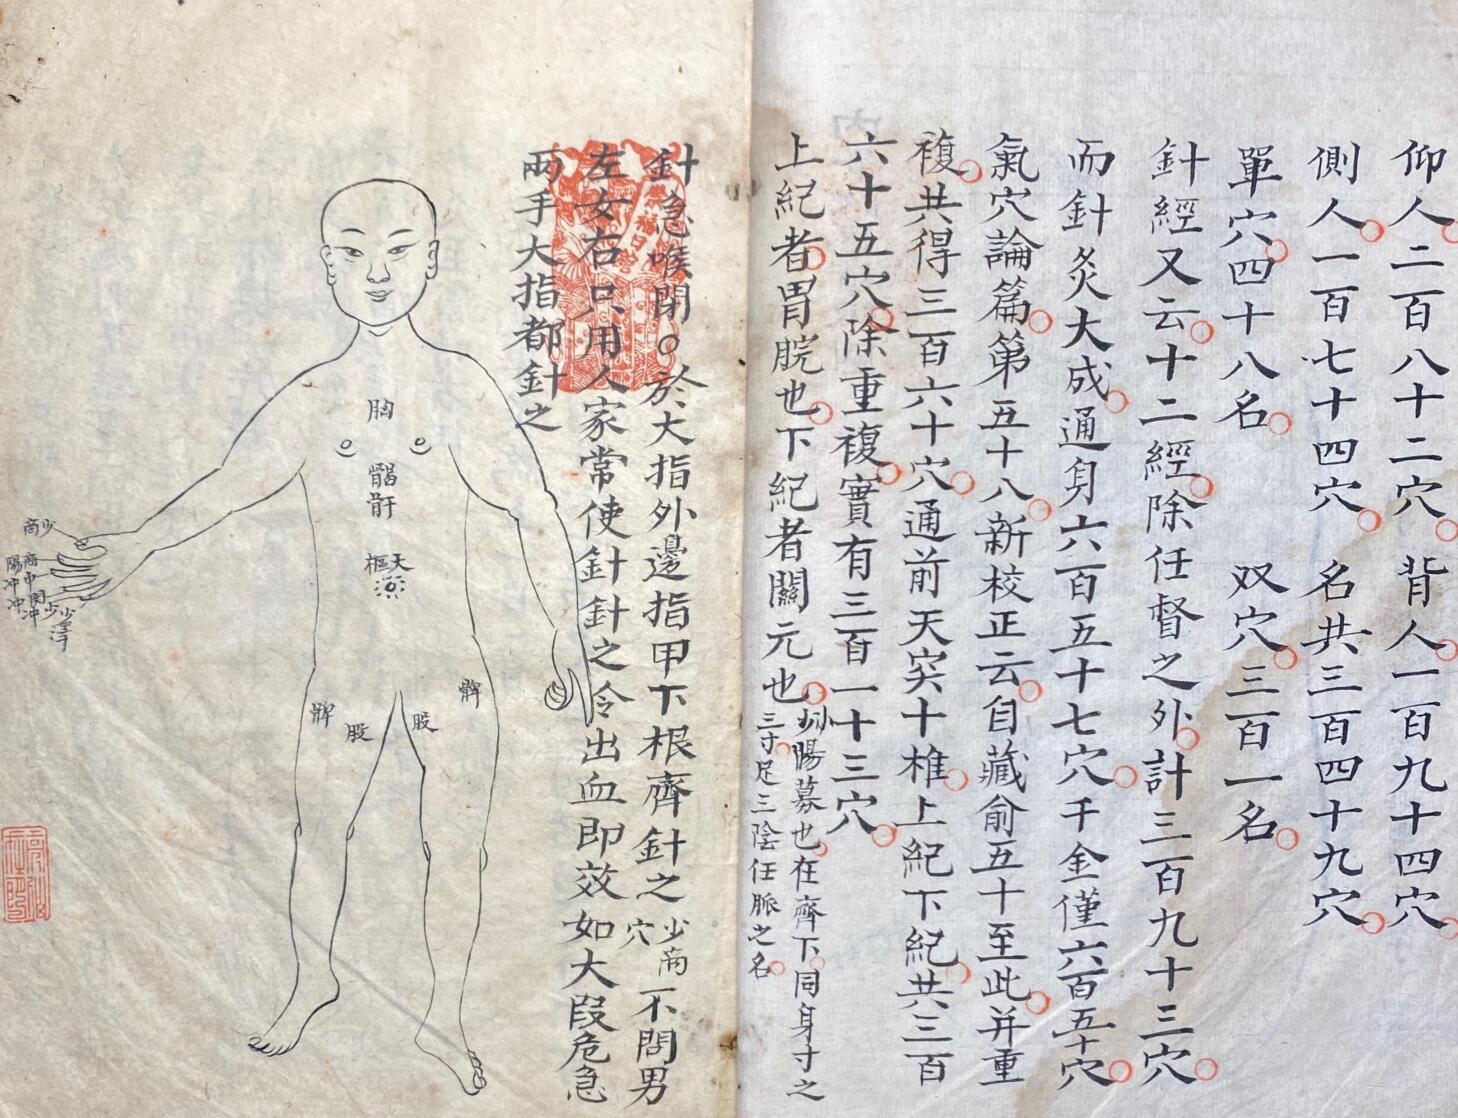 仰人二百八十二穴　背人一百九十四穴
側人一百七十四穴　名共三百四十九穴
單穴四十八名　双穴三百一名
針經又云十二經除任督之外計三百九十三穴
而針灸大成通身六百五十七穴千金僅六百五十穴
氣穴論篇第五十八新校正云自藏俞五十至此并重
複共得三百六十穴通前天突十椎上紀下紀共三百
六十五穴除重複實有三百一十三穴
上紀者胃脘也下紀者關元也
陽募也在齊下同身寸之
三寸足三陰任脈之名
針急喉閉○於大指外邊指甲下根齊針之
少商
穴
不問男
左女右只用人家常使針針之令出血即效如大段危急
兩手大指都針之
胸
𩩲
骬
天
樞
髀
股
股
髀
少
商
商
陽
中
冲
関
冲
少
冲
少
澤